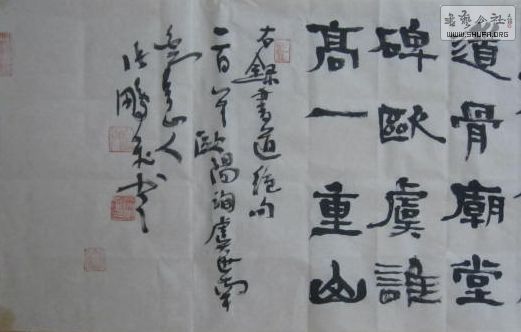 道骨廟堂
碑歐虞誰
高一重山
右錄書道絕句
二百首歐陽詢虞世南
山人
鵬書
书艺公社
WWW.SHUFA.ORG